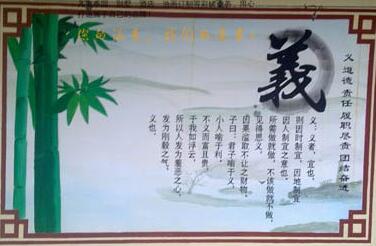 義
义 道德 责任 履职尽责 团结奋进
义：义者，宜也，
则因时制宜，因地制宜
因人制宜之意也。
所需做就做，不该做就不做，
见得思义。
因果滥取不让之财物。
子曰：君子喻于义，
小人喻于利。
不义而富且贵，
于我如浮云，
所以人发为羞恶之心，
发为刚毅之气，
义也。